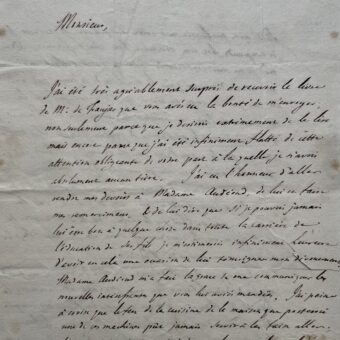 Monsieur,
J'ai été très agréablement surpris de recevoir le livre
de Mr. de Faujas que vous avés eu la bonté de m'envoyer
non seulement parce que je desirois extrêmement de le lire
mais encore parce que j'ai été infiniment flatté de cette
attention obligeante de votre part à la quelle je n'avois
absolument aucun titre. J'ai eu l'honneur d'aller
rendre mes devoirs à Madame de lui en faire
mes remercimens & de lui dire que si je pouvois jamais
lui être bon à quelque chose dans toute la carrière de
l'éducation de son fils je m'estimerois infiniment heureux
d'avoir en cela une occasion de lui temoigner mon dévouement
Madame m'a fait la grace de me communiquer les
nouvelles interessantes que vous lui aviés mandées. J'ai peine
à croire que le feu de la cuisine de la maison que
une de ces machines puisse jamais servir à les faire aller